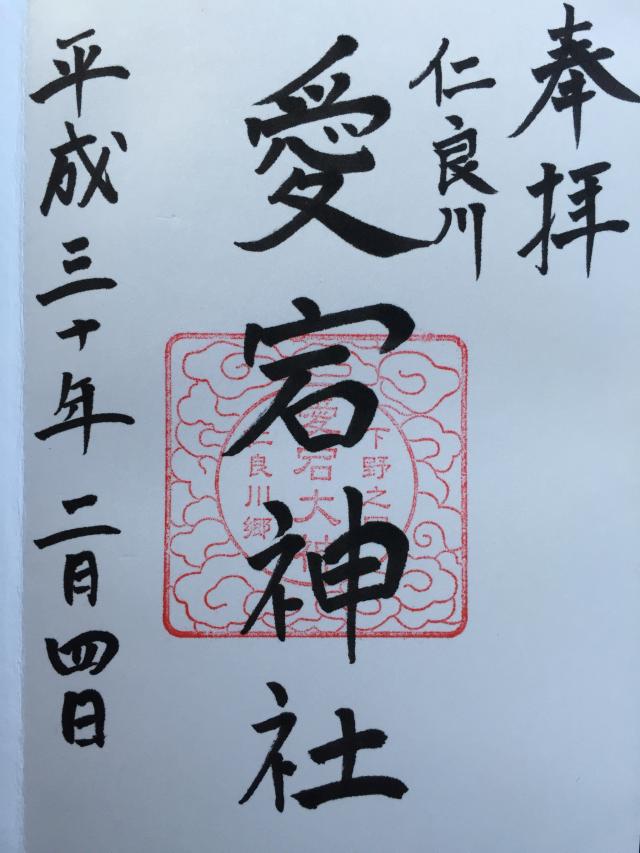 奉拝
仁良川
愛宕神社
平成三十年二月四日
下野之
愛宕大神
仁良川郷